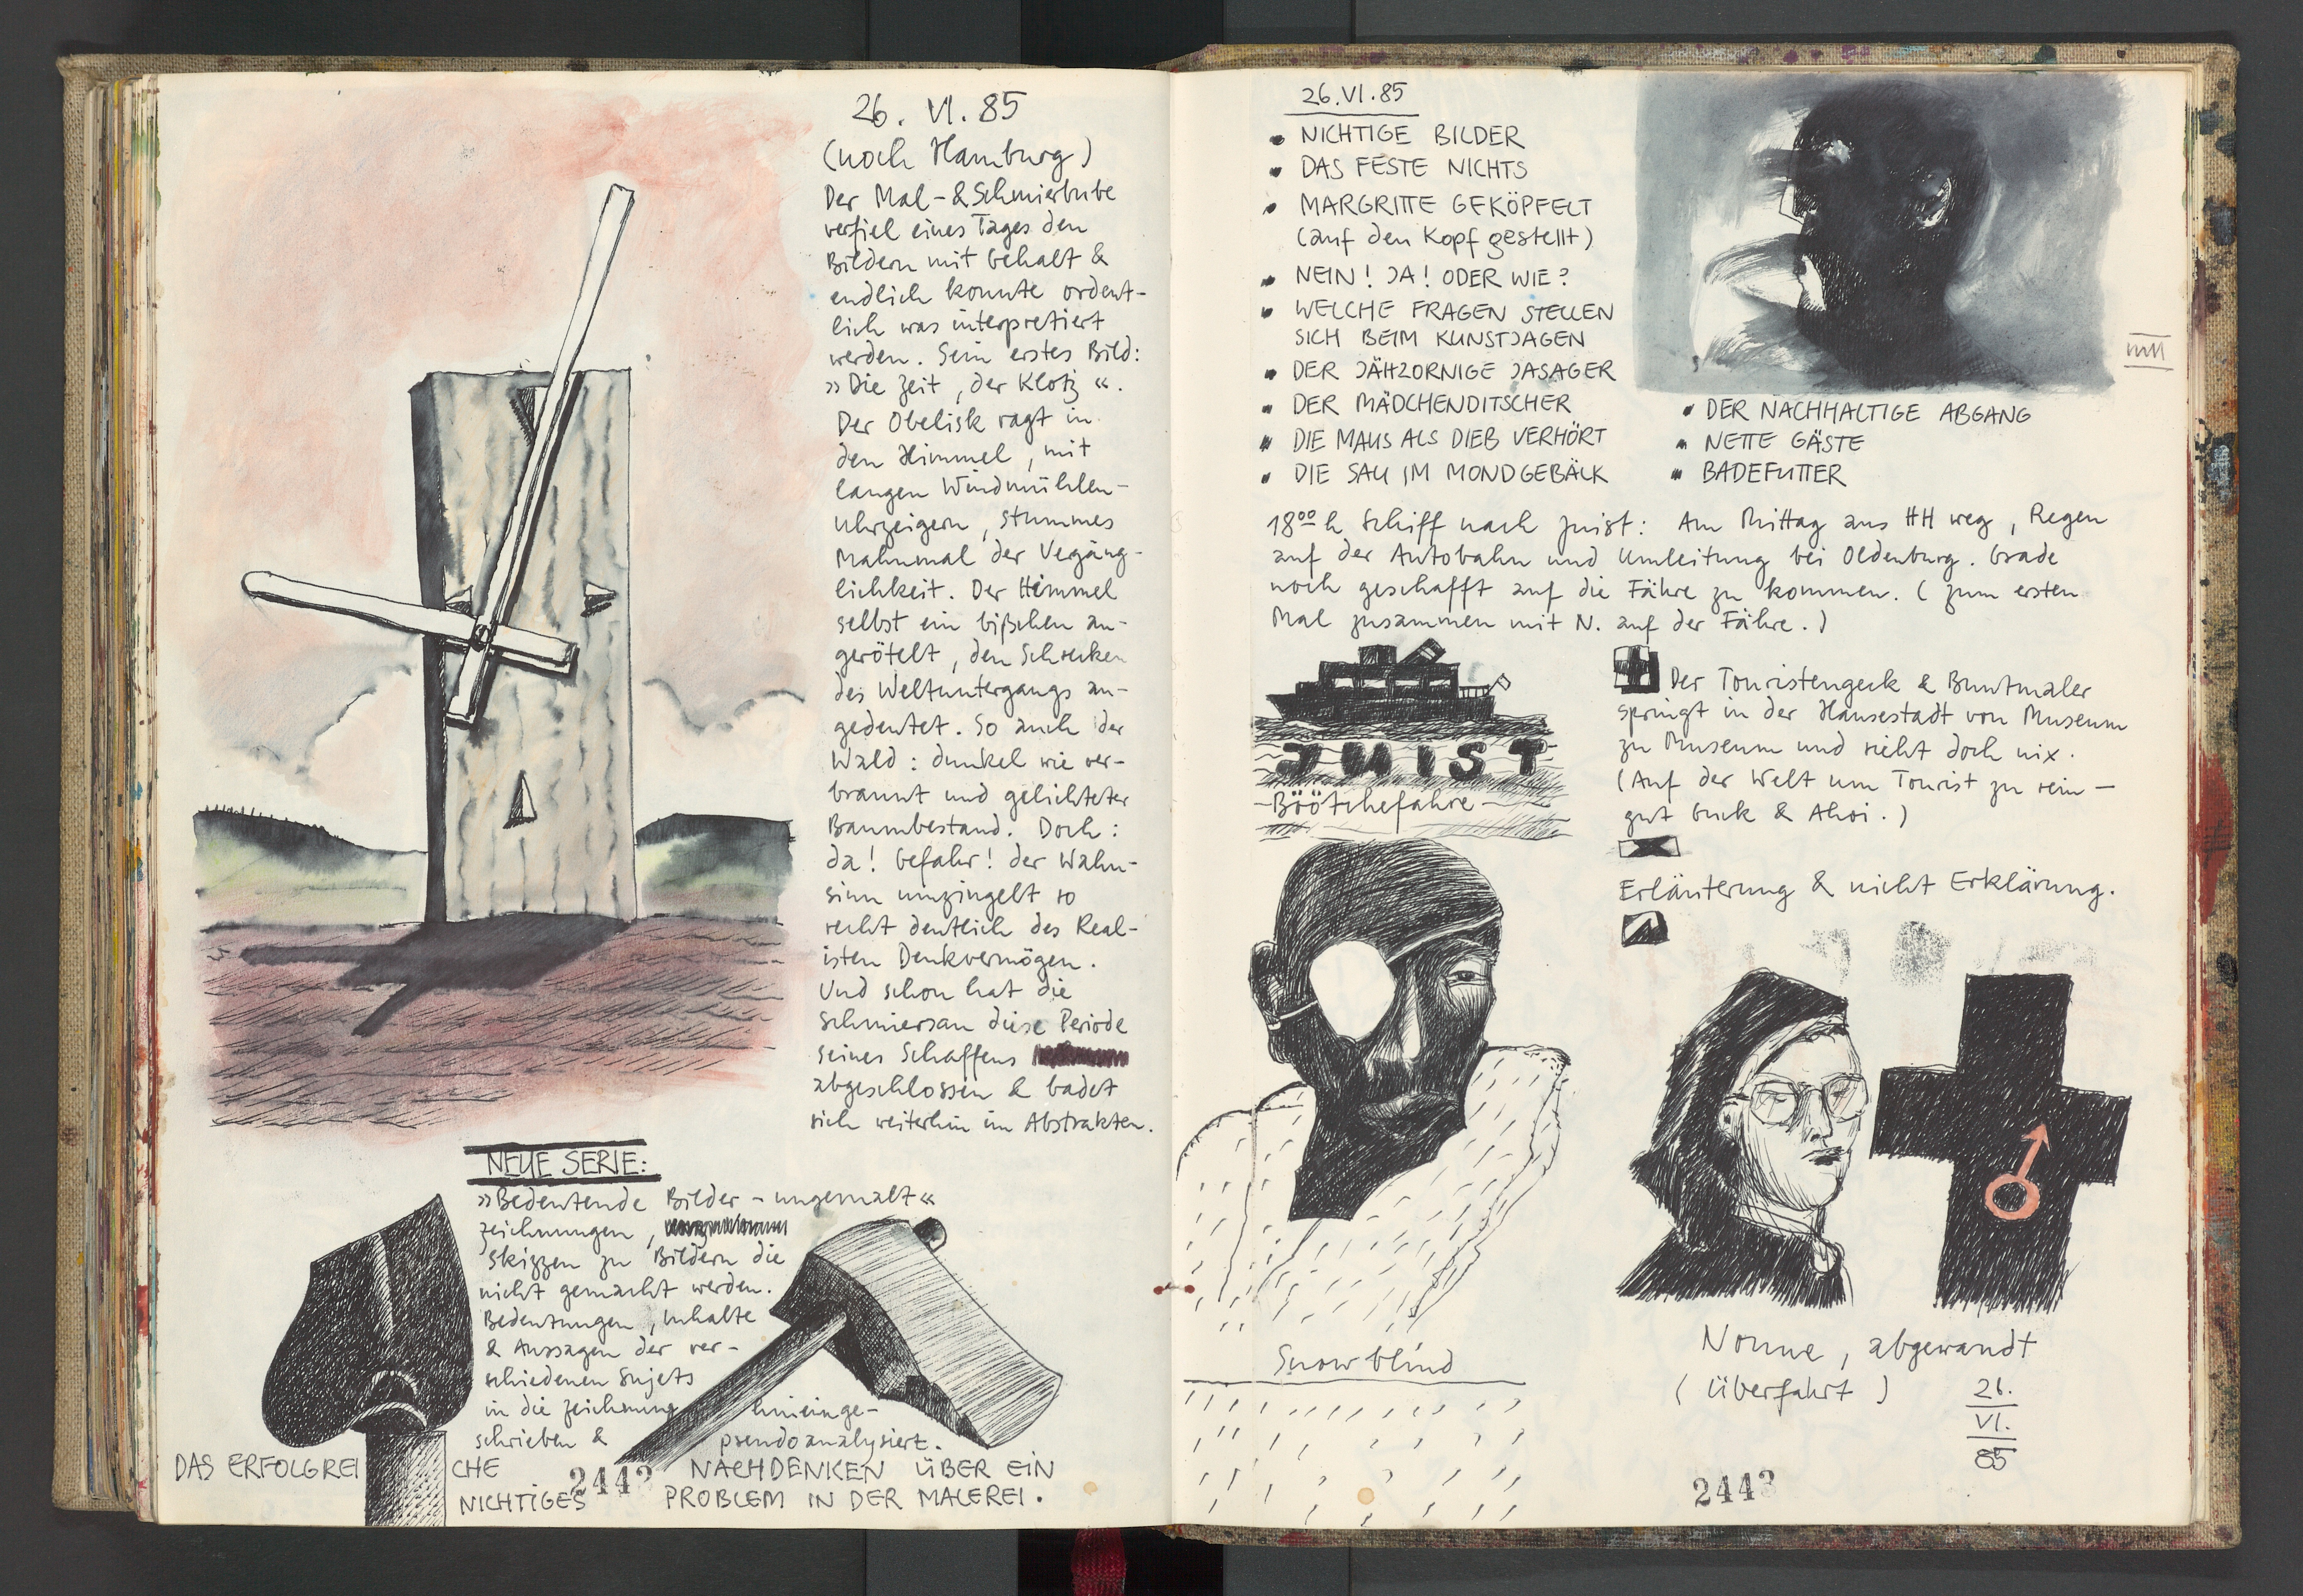 26. VI. 85
(noch Hamburg)
Der Mal- & Schmierbube
verfiel eines Tages den
Bildern mit Gehalt &
endlich konnte ordent-
lich was interpretiert
werden. Sein erstes Bild:
»Die Zeit, der Klotz«.
Der Obelisk ragt in
den Himmel, mit
langen Windmühlen-
uhrzeigern, stummes
Mahnmal der Vegäng-
lichkeit. Der Himmel
selbst ein bißchen an-
gerötelt, den Schrecken
des Weltuntergangs an-
gedeutet. So auch der
Wald: dunkel wie ver-
brannt und gelichteter
Baumbestand. Doch:
da! Gefahr! der Wahn-
sinn umzingelt so
recht deutlich des Real-
isten Denkvermögen.
Und schon hat die
Schmiersau diese Periode
seines Schaffens
abgeschlossen & badet
sich weiterhin im Abstrakten.
NEUE SERIE:
»Bedeutende Bilder - ungemalt«
Zeichnungen,
Skizzen zu Bildern die
nicht gemacht werden.
Bedeutungen, Inhalte
& Aussagen der ver-
schiedenen Sujets
in die Zeichnung hineinge-
schrieben & pseudoanalysiert.
DAS ERFOLGREICHE NACHDENKEN ÜBER EIN
NICHTIGES PROBLEM IN DER MALEREI.
2442
26.VI.85
• NICHTIGE BILDER
• DAS FESTE NICHTS
• MARGRITTE GEKÖPFELT
(auf den Kopf gestellt)
• NEIN! JA! ODER WIE?
• WELCHE FRAGEN STELLEN
SICH BEIM KUNSTJAGEN
• DER JÄHZORNIGE JASAGER
• DER MÄDCHENDITSCHER
• DIE MAUS ALS DIEB VERHÖRT
• DIE SAU IM MONDGEBÄLK
• DER NACHHALTIGE ABGANG
• NETTE GÄSTE
• BADEFUTTER
18⁰⁰h Schiff nach Juist: Am Mittag aus HH weg, Regen
auf der Autobahn und Umleitung bei Oldenburg. Grade
noch geschafft auf die Fähre zu kommen. (zum ersten
Mal zusammen mit N. auf der Fähre.)
JUIST
-Böötchefahre-
Der Touristengeck & Buntmaler
springt in der Hansestadt von Museum
zu Museum und sieht doch nix.
(Auf der Welt um Tourist zu sein -
gut Guck & Ahoi.)
Erläuterung & nicht Erklärung.
Snowblind
Nonne, abgewandt
(Überfahrt)
26.
VI.
85
2443